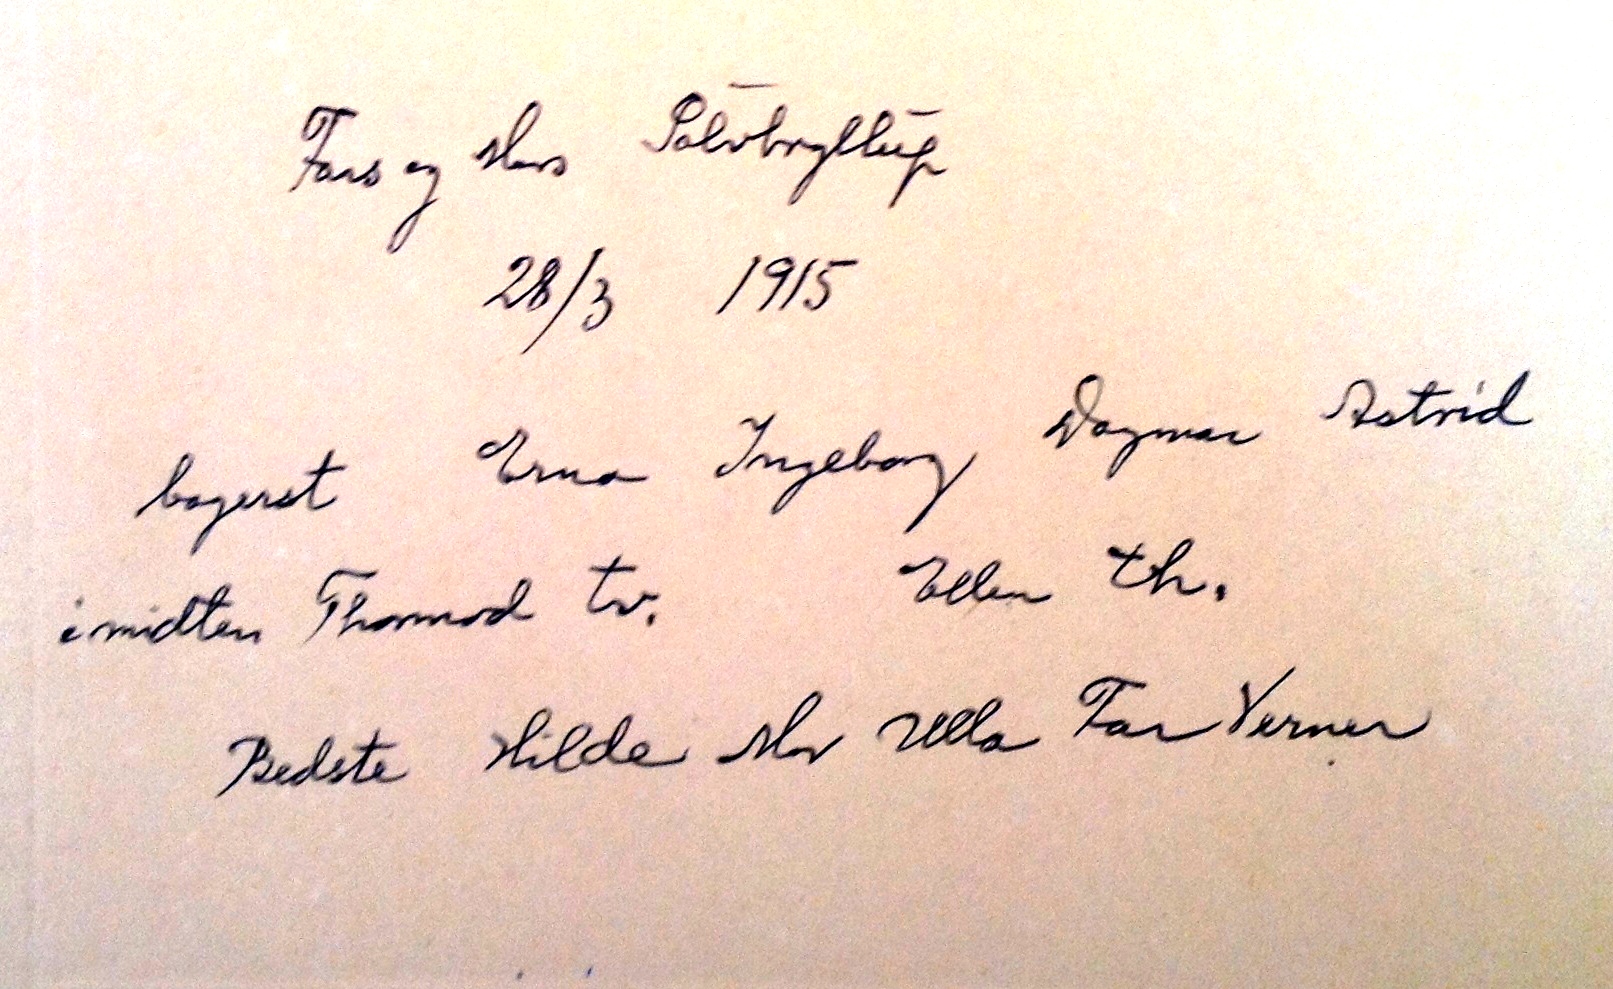 Fars og Mors Sølvbryllup
28/3 1915
bagerst Erna Ingeborg Dagmar Astrid
i midten Thormod tv. Ellen th.
Bedste Hilde Mor Ulla Far Verner